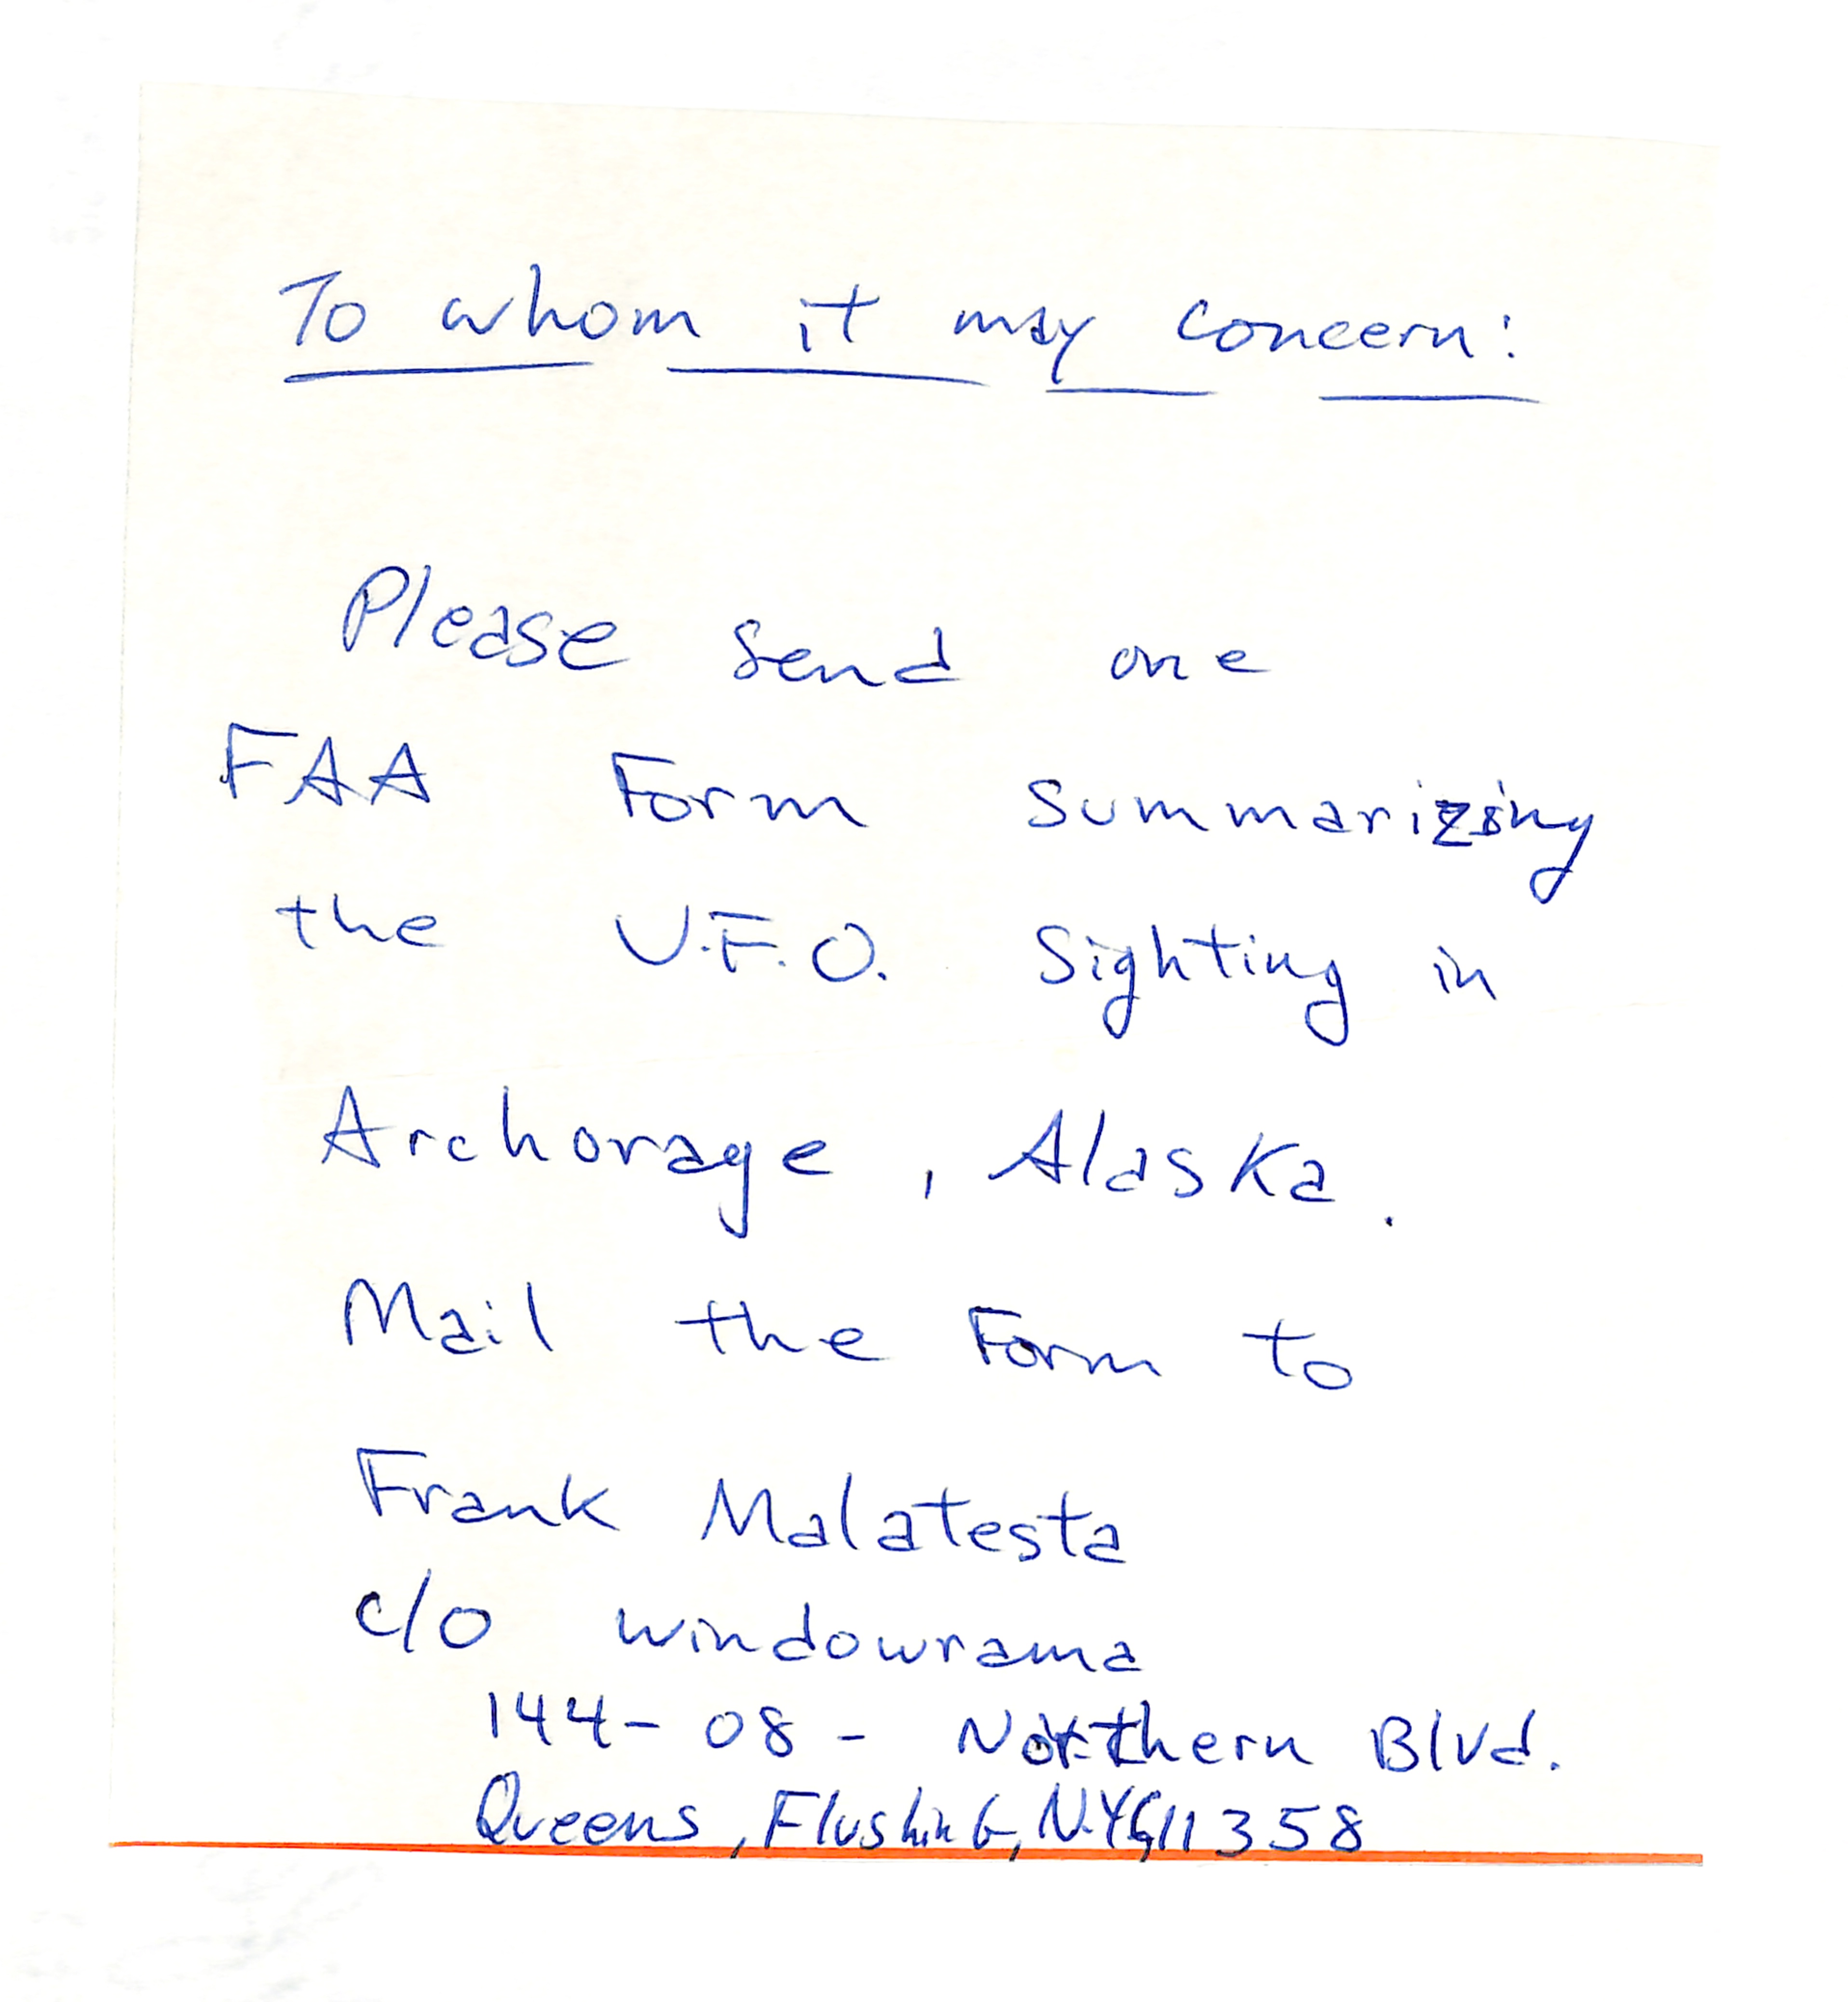 To whom it may concern:
Please send one
FAA Form summarizing
the U.F.O. Sighting in
Archorage, Alaska.
Mail the Form to
Frank Malatesta
c/o windowrama
144-08- Northern Blvd.
Queens, Flushing, NYC, 11358